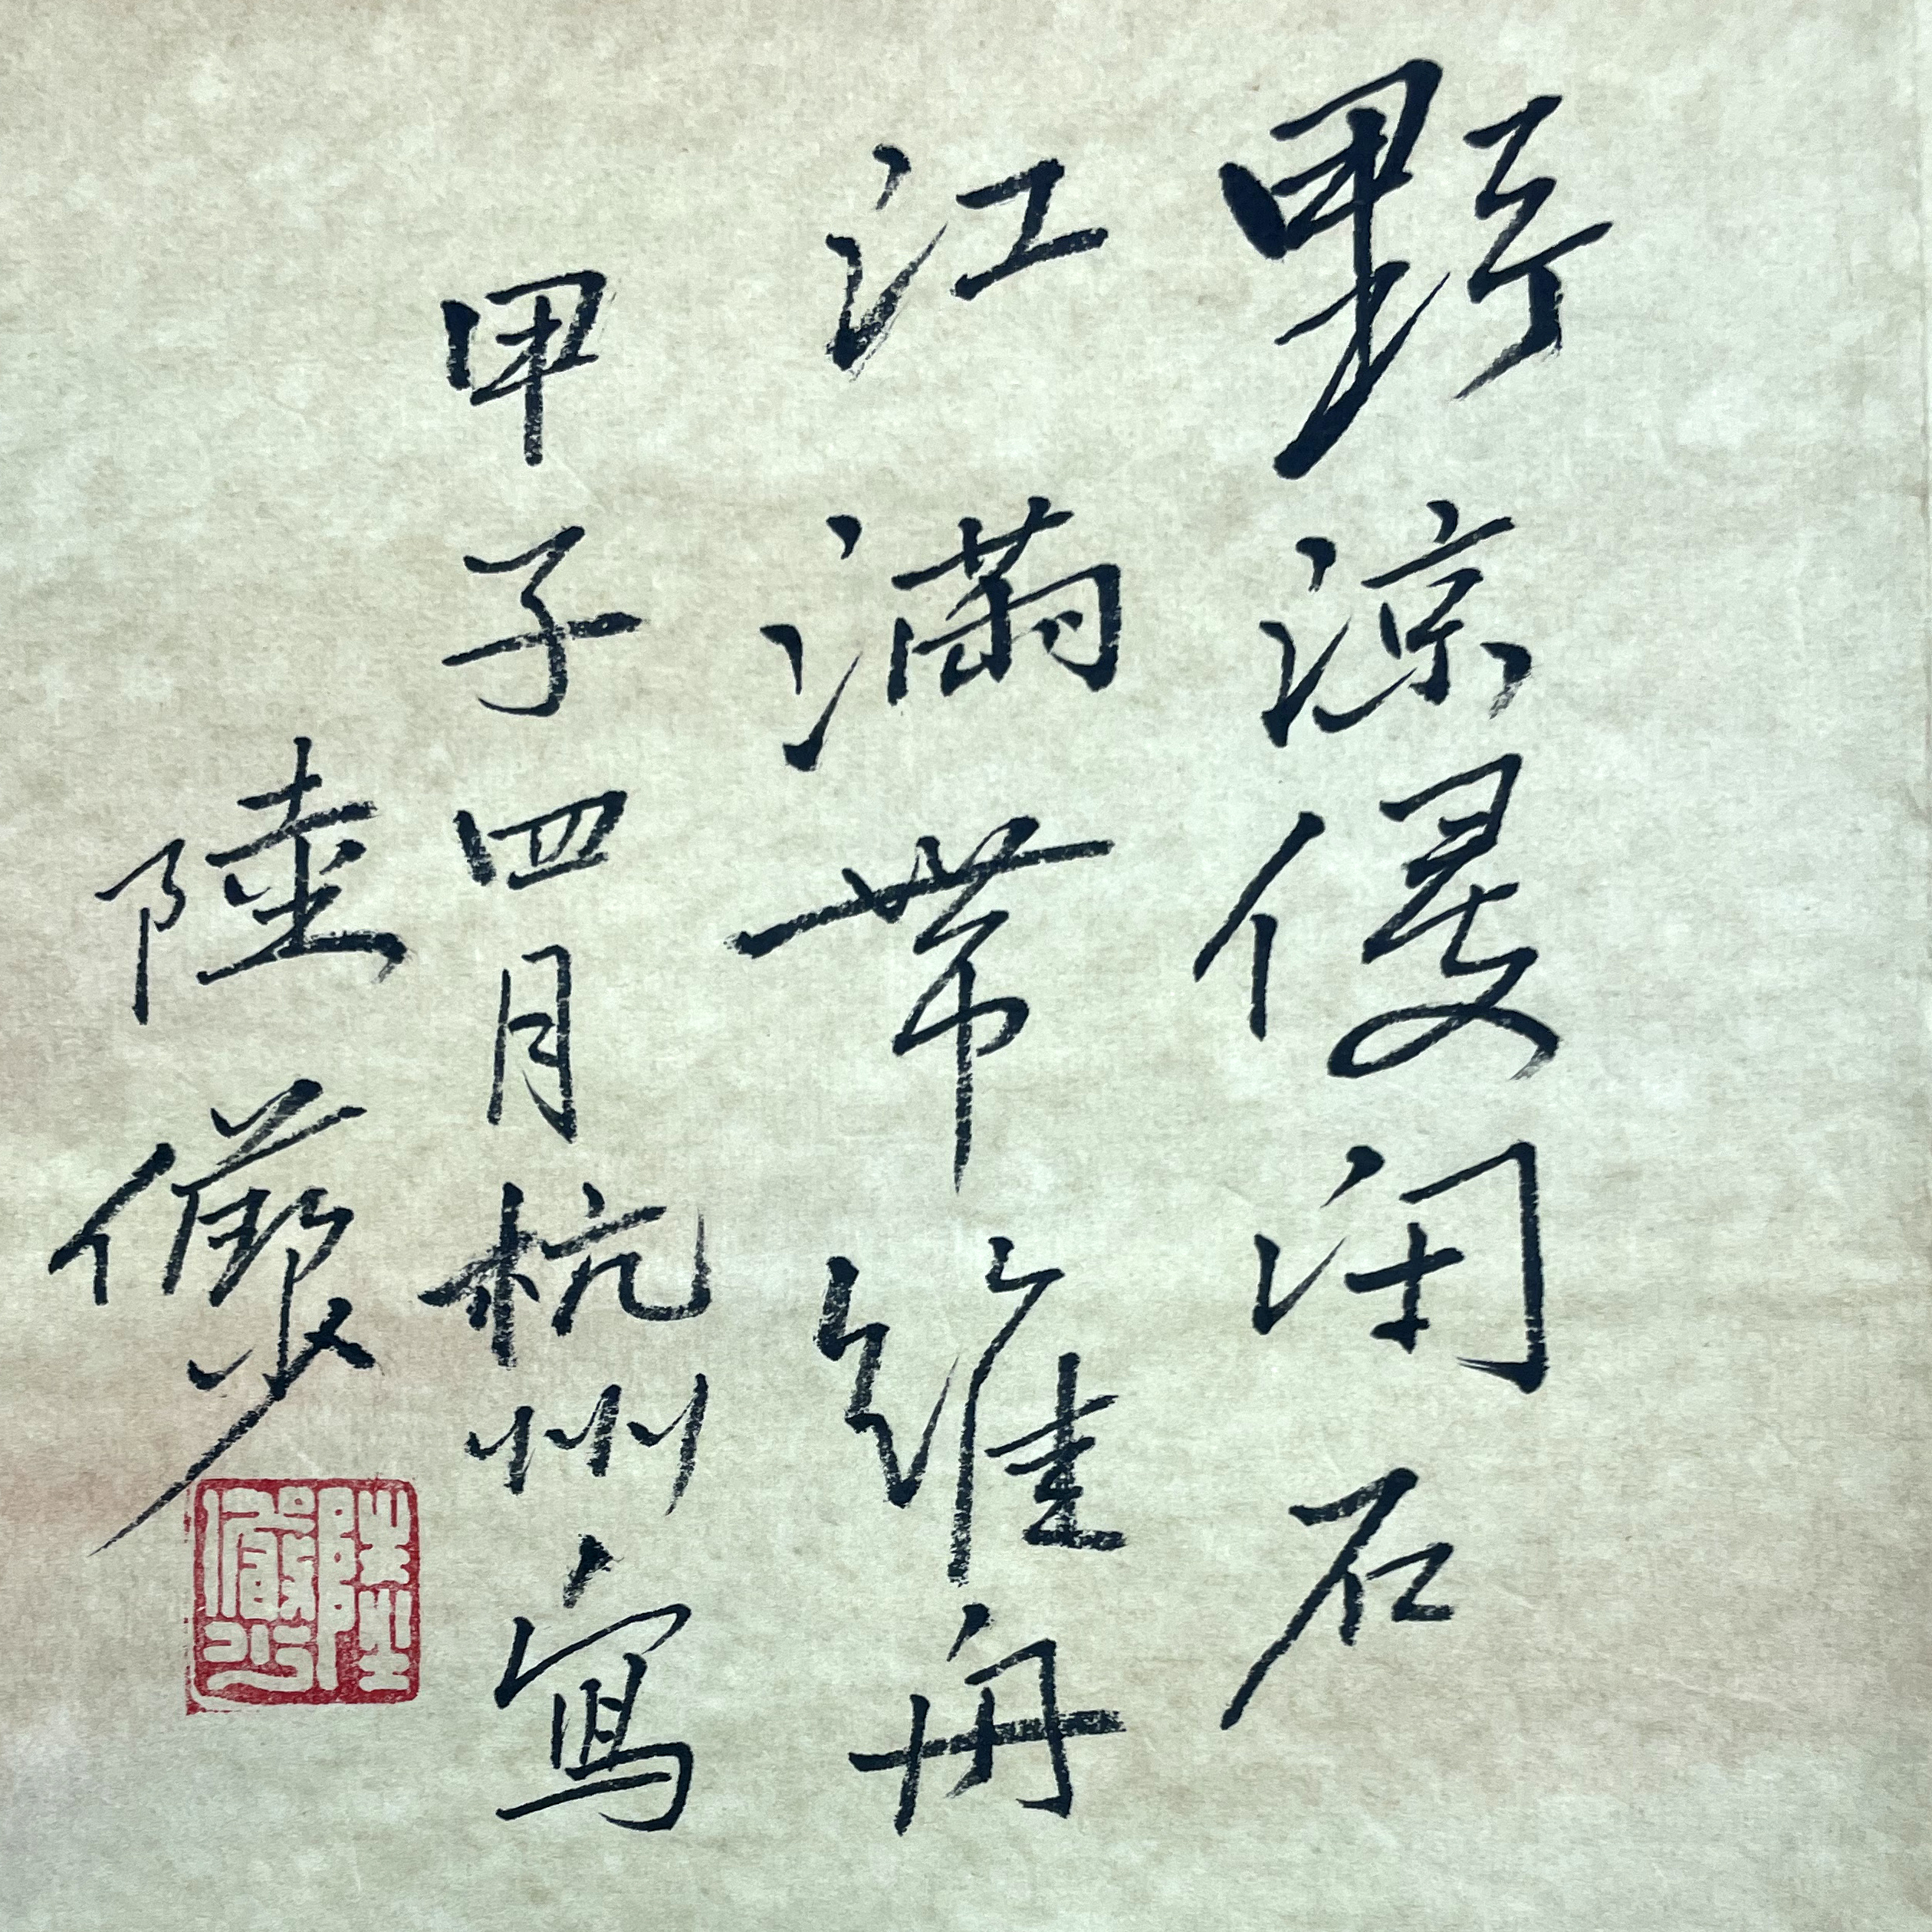 野涼侵閉户
江滿帶維舟
甲子四月杭州寫
陸儼少
陸儼少